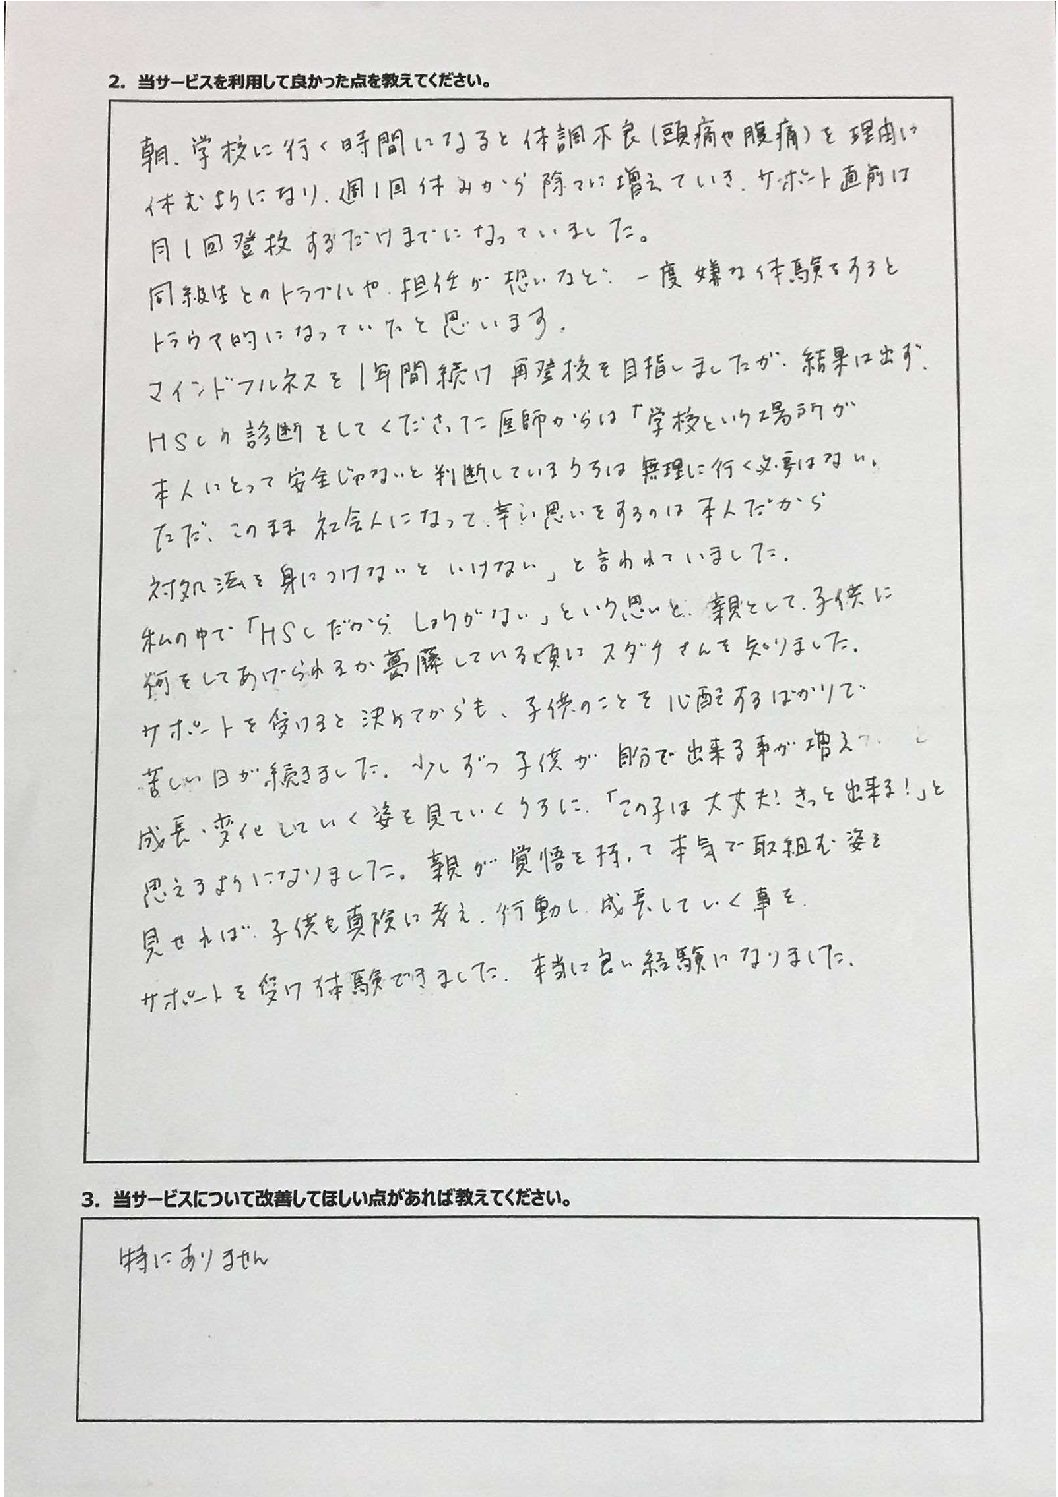 2. 当サービスを利用して良かった点を教えてください。
朝、学校に行く時間になると体調不良(頭痛や腹痛)を理由に
休むようになり、週1回休みから除々に増えていき、サポート直前は
月1回登校するだけまでになっていました。
同級生とのトラブルや、担任が想いなど、一度嫌な体験をすると
トラウマ的になっていたと思います。
マインドフルネスを1年間続け再登校を目指しましたが、結果は出ず、
HSCの診断をしてくださった医師からは「学校という場所が
本人にとって安全じゃないと判断しているうちは無理に行く必要はない。
ただ、このまま社会人になって、辛い思いをするのは本人だから
対処法を身につけないといけない」と言われていました。
私の中で「HSCだからしょうがない」という思いと、親として、子供に
何をしてあげられるか葛藤している頃にスダチさんを知りました。
サポートを受けると決めてからも、子供のことを心配するばかりで
苦しい日が続きました。少しずつ子供が自分で出来る事が増えて
成長・変化していく姿を見ていくうちに、「この子は大丈夫!きっと出来る!」と
思えるようになりました。親が覚悟を持って本気で取組む姿を
見せれば、子供も真険に考え、行動し、成長していく事を、
サポートを受け体験できました。本当に良い経験になりました。
3. 当サービスについて改善してほしい点があれば教えてください。
特にありません